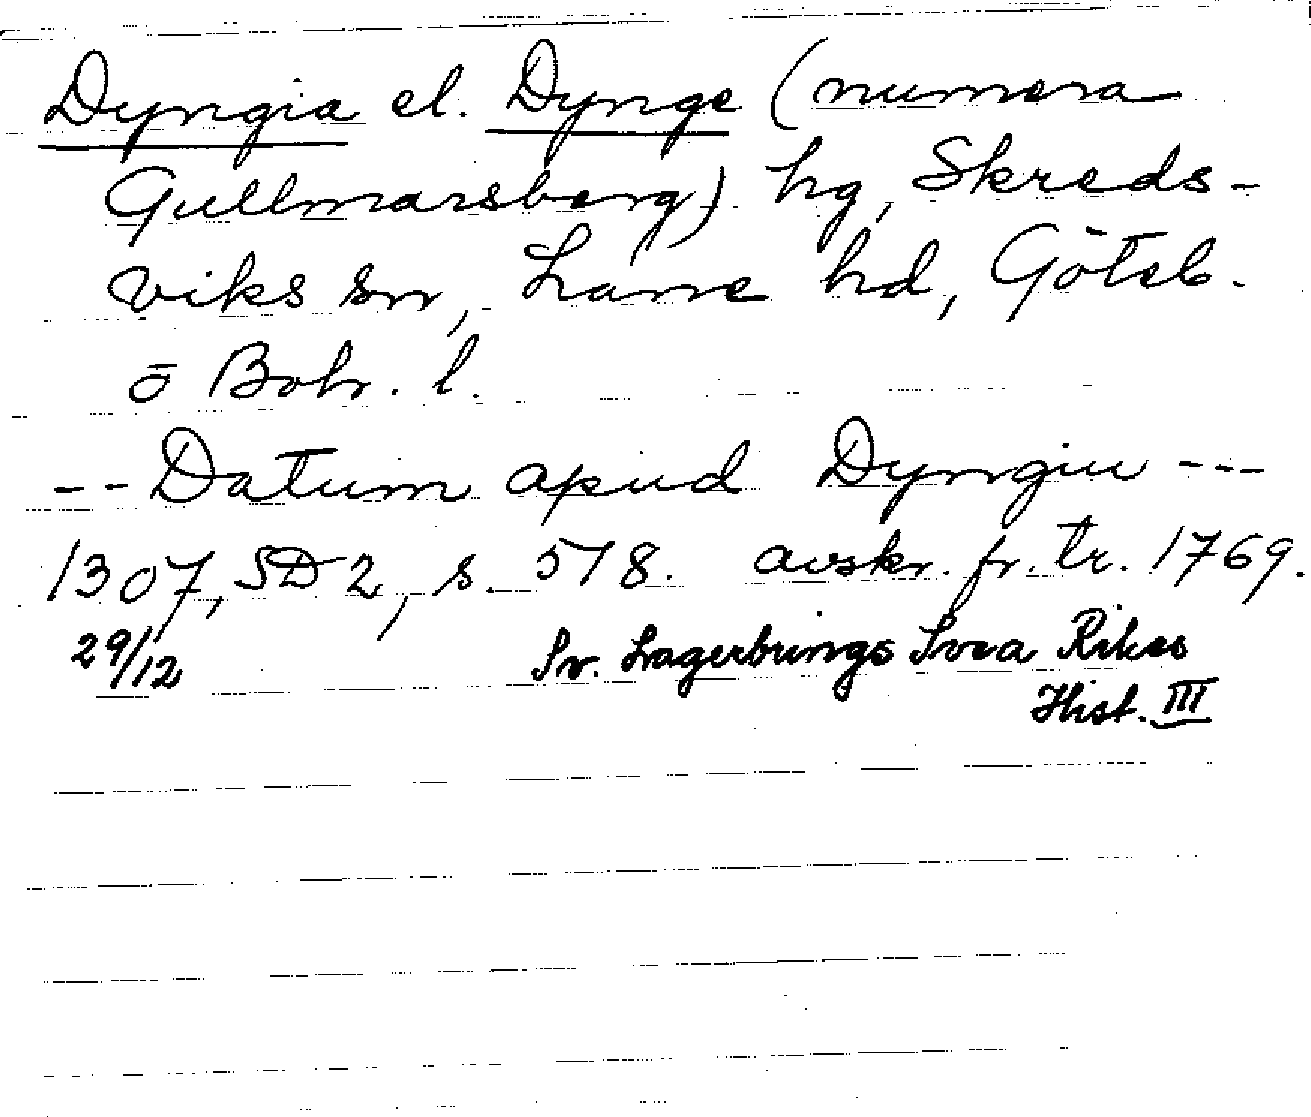 Dyngia el. Dynge (numera
Gullmarsberg) hg, Skreds-
viks sn, Lane hd, Göteb.
o Bohr. l.
-- Datum apud Dyngiu ---
1307, SD 2, s. 578. avskr. fr. tr. 1769.
29/12 Sv. Lagerbrings Svea Rikes
Hist. III